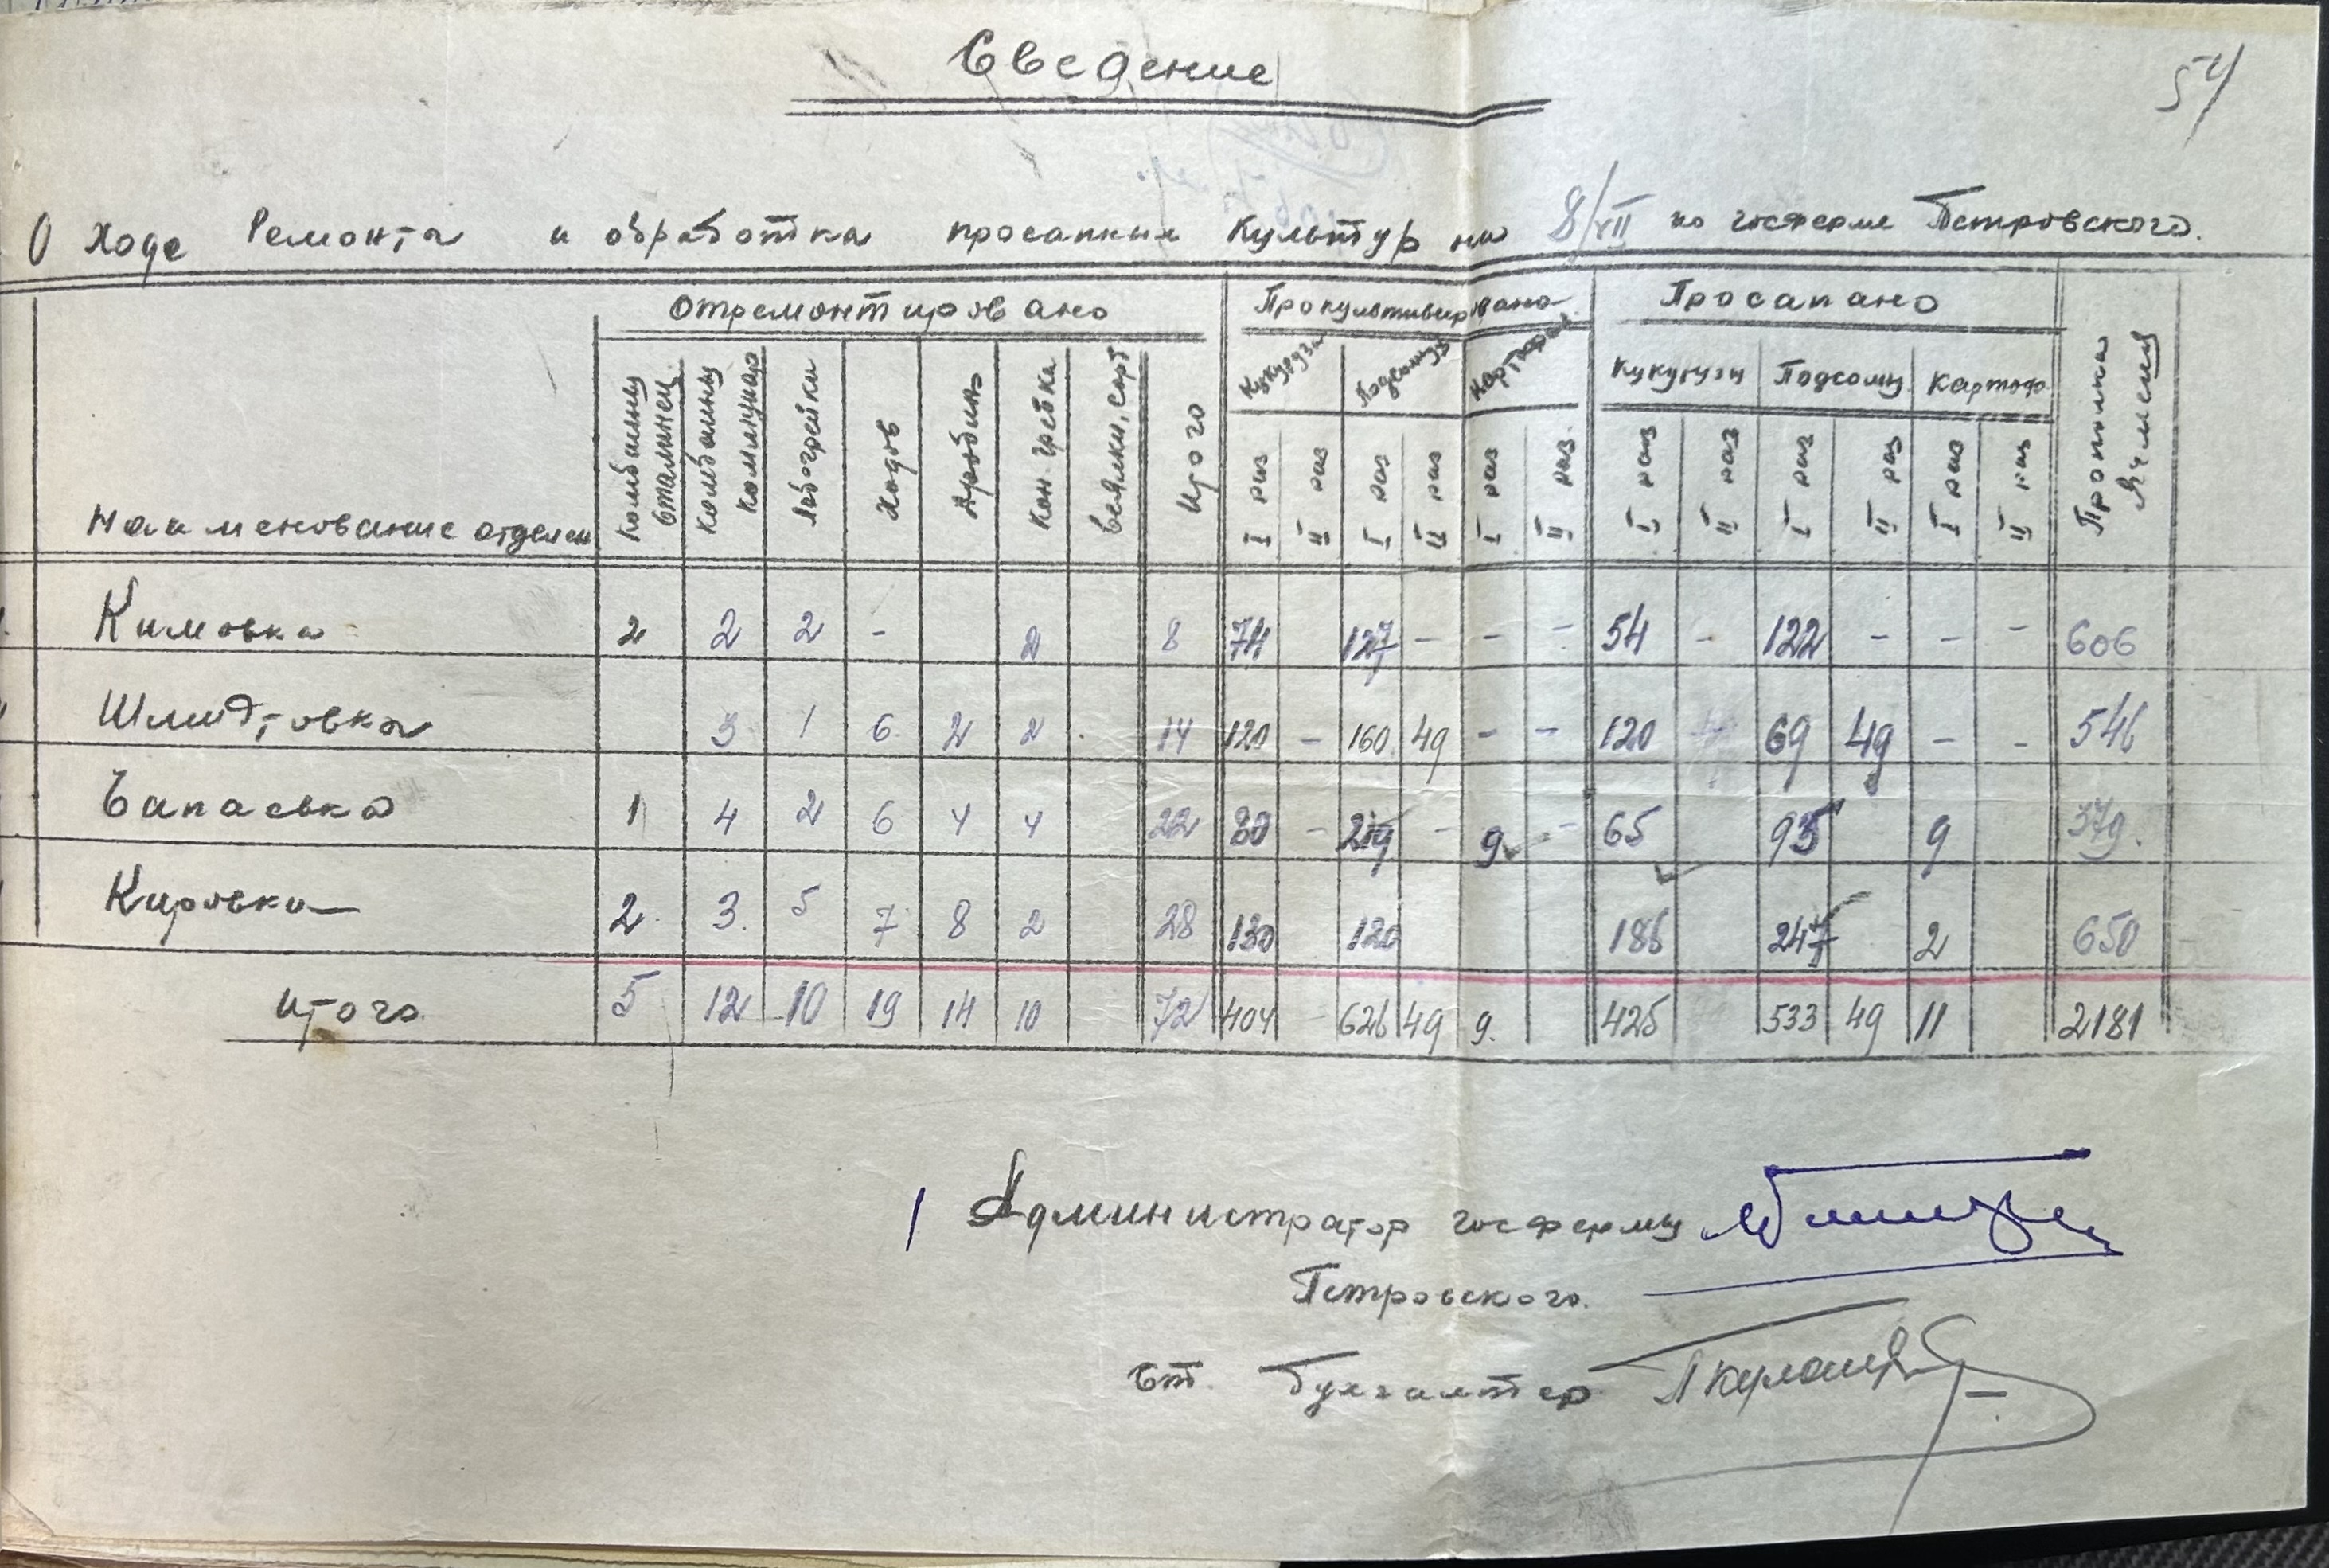 54
Сведение
О ходе Ремонта и обработка просапких культур на 8/VII по госферме Петровского.
Наименование отделен Отремонтировано Прокультивировано Просапано Прополка Ячменя
Комбайны Сталинец Комбайны Коммунар Лобогрейки Ходов Дробин Кон. гребка Веялки, сорт Итого Кукурузы Подсолнух Картофель Кукурузы Подсолнц Картофе
I раз II раз I раз II раз I раз II раз I раз II раз I раз II раз I раз II раз
Кимовка 2 2 2 - 2 8 74 127 - - - 54 - 122 - - - 606
Шмидтовка 3 1 6 2 2 14 120 - 160 49 - - 120 69 49 - - 546
Чапаевка 1 4 2 6 4 4 22 80 - 219 - 9 - 65 95 9 379.
Кировка 2 3. 5 7 8 2 28 130 120 186 247 2 650
итого 5 12 10 19 14 10 72 404 - 626 49 9. 425 533 49 11 2181
Администратор госфермы
Петровского.
Ст. Бухгалтер